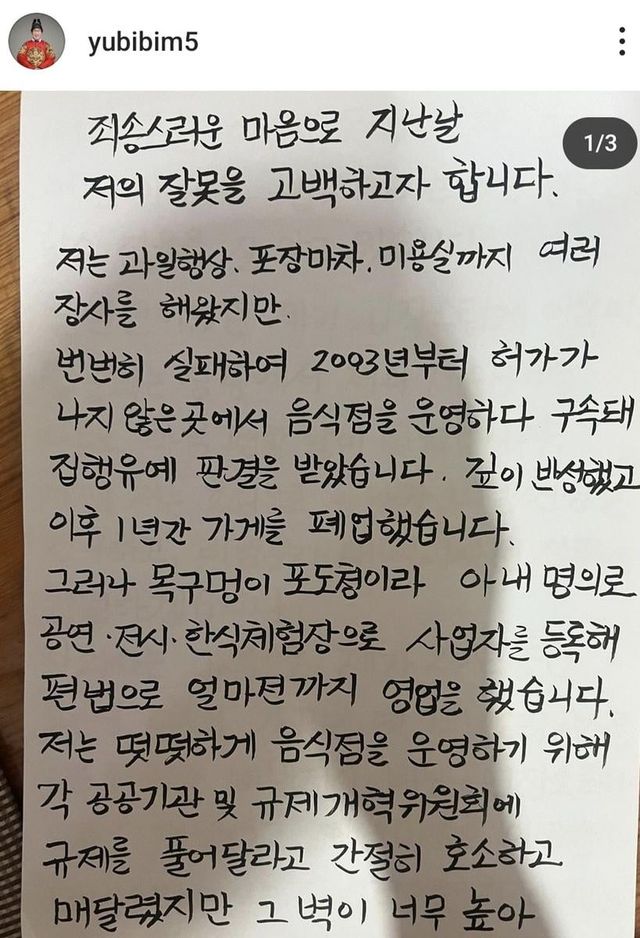 yubibim5
1/3
죄송스러운 마음으로 지난날
저의 잘못을 고백하고자 합니다.
저는 과일행상. 포장마차. 미용실까지 여러
장사를 해왔지만.
번번히 실패하여 2003년부터 허가가
나지 않은 곳에서 음식점을 운영하다 구속돼
집행유예 판결을 받았습니다. 깊이 반성했고
이후 1년간 가게를 폐업했습니다.
그러나 목구멍이 포도청이라 아내 명의로
공연·전시·한식체험장으로 사업자를 등록해
편법으로 얼마전까지 영업을 했습니다.
저는 떳떳하게 음식점을 운영하기 위해
각 공공기관 및 규제개혁위원회에
규제를 풀어달라고 간절히 호소하고
매달렸지만 그 벽이 너무 높아